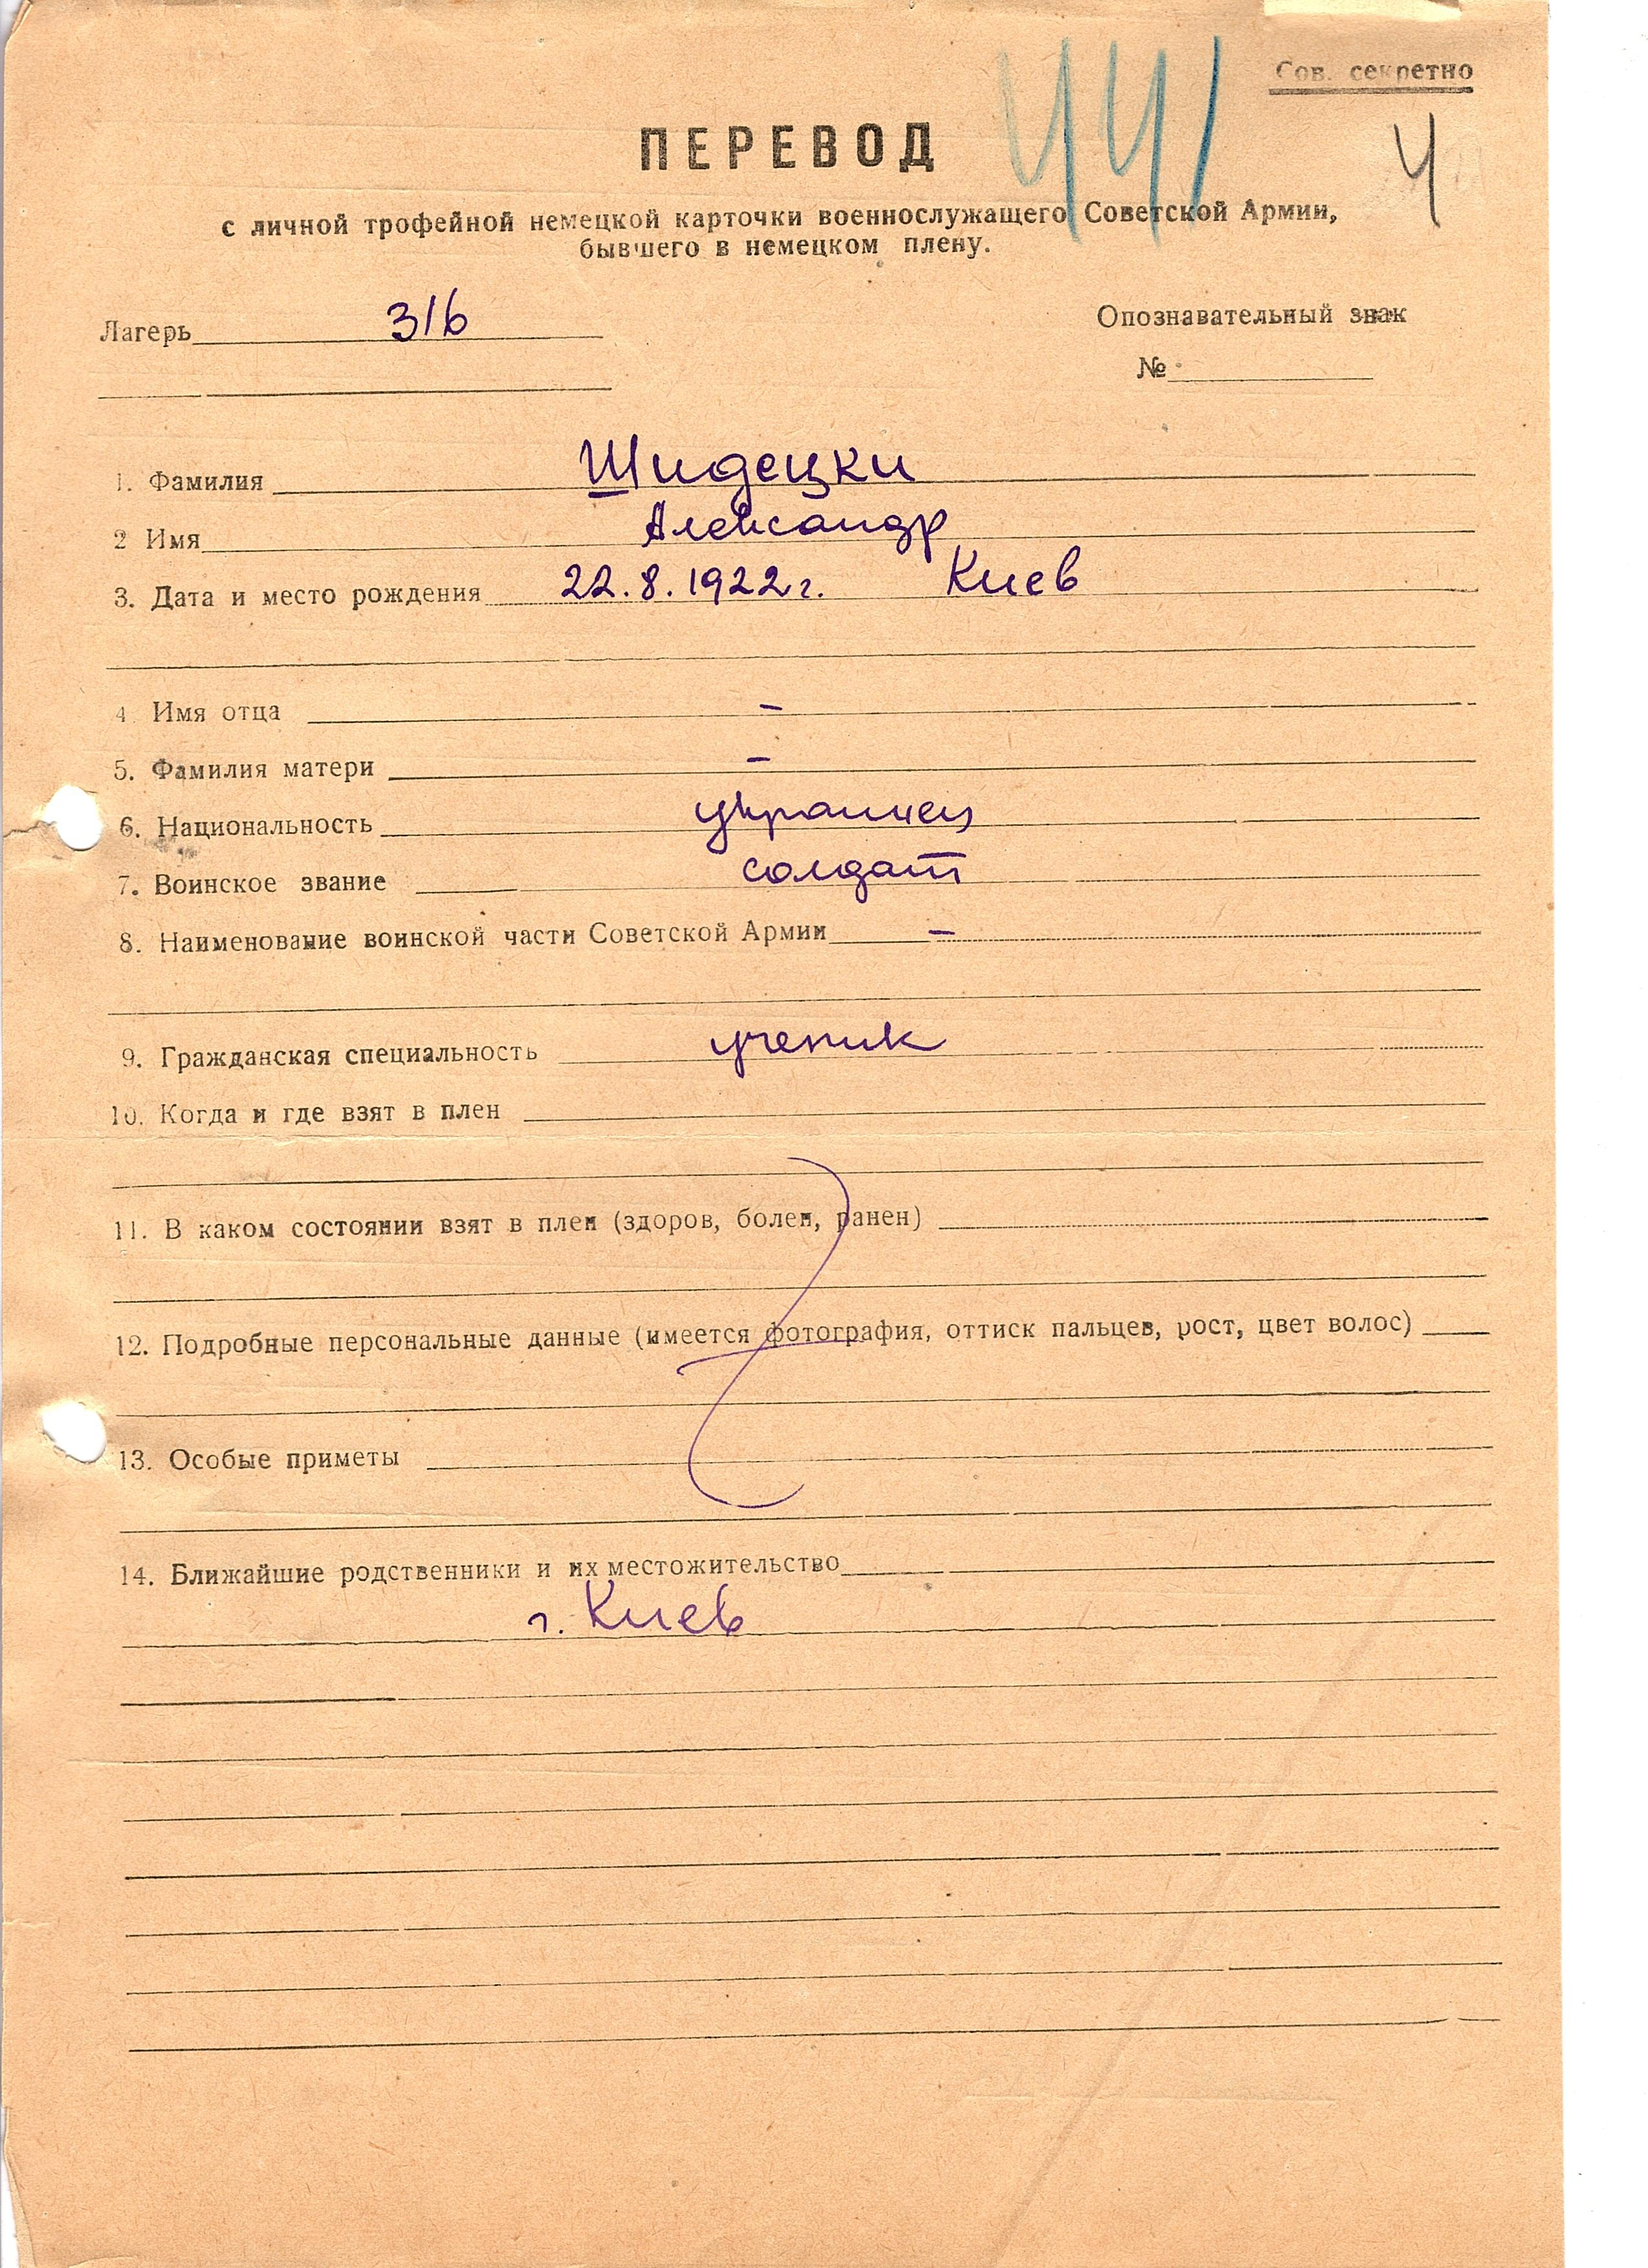 Сов. секретно
441
4
ПЕРЕВОД
с личной трофейной немецкой карточки военнослужащего Советской Армии,
бывшего в немецком плену.
Лагерь 316
Опознавательный знак
№
1. Фамилия Шидецки
2 Имя Александр
3. Дата и место рождения 22.8.1922г. Киев
4. Имя отца –
5. Фамилия матери –
6. Национальность украинец
7. Воинское звание солдат
8. Наименование воинской части Советской Армии –
9. Гражданская специальность ученик
10. Когда и где взят в плен
11. В каком состоянии взят в плен (здоров, болен, ранен)
12. Подробные персональные данные (имеется фотография, оттиск пальцев, рост, цвет волос)
13. Особые приметы
14. Ближайшие родственники и их местожительство
г. Киев